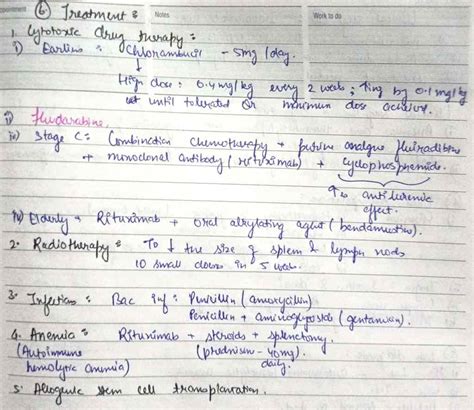 Notes
Work to do
⑥ Treatment :
1. Cytotoxic drug therapy :
i) Earlier : Chlorambucil - 5mg/day.
↓
High dose : 0.4 mg/kg every 2 week ; ↑ing by 0.1 mg/kg
until tolerated or maximum dose achieve.
ii) fludarabine.
iii) Stage C : Combination chemotherapy + purine analgue
+ monoclonal antibody (rituximab) + cyclophosphamide.
↑ antileukemic
effect.
iv) Elderly + Rituximab + oral alkylating agent (bendamustin).
2. Radiotherapy : To ↓ the size of spleen & lymph nods
10 small doses in 5 week.
3. Infection : Bac inf : Penicillin (amoxycillin)
Penicillin + aminoglycoside (gentamicin).
4. Anemia : Rituximab + steroids + splenectomy.
(Autoimmune (prednison - 40mg)
hemolytic anemia) daily.
5. Allogenic stem cell transplantation.